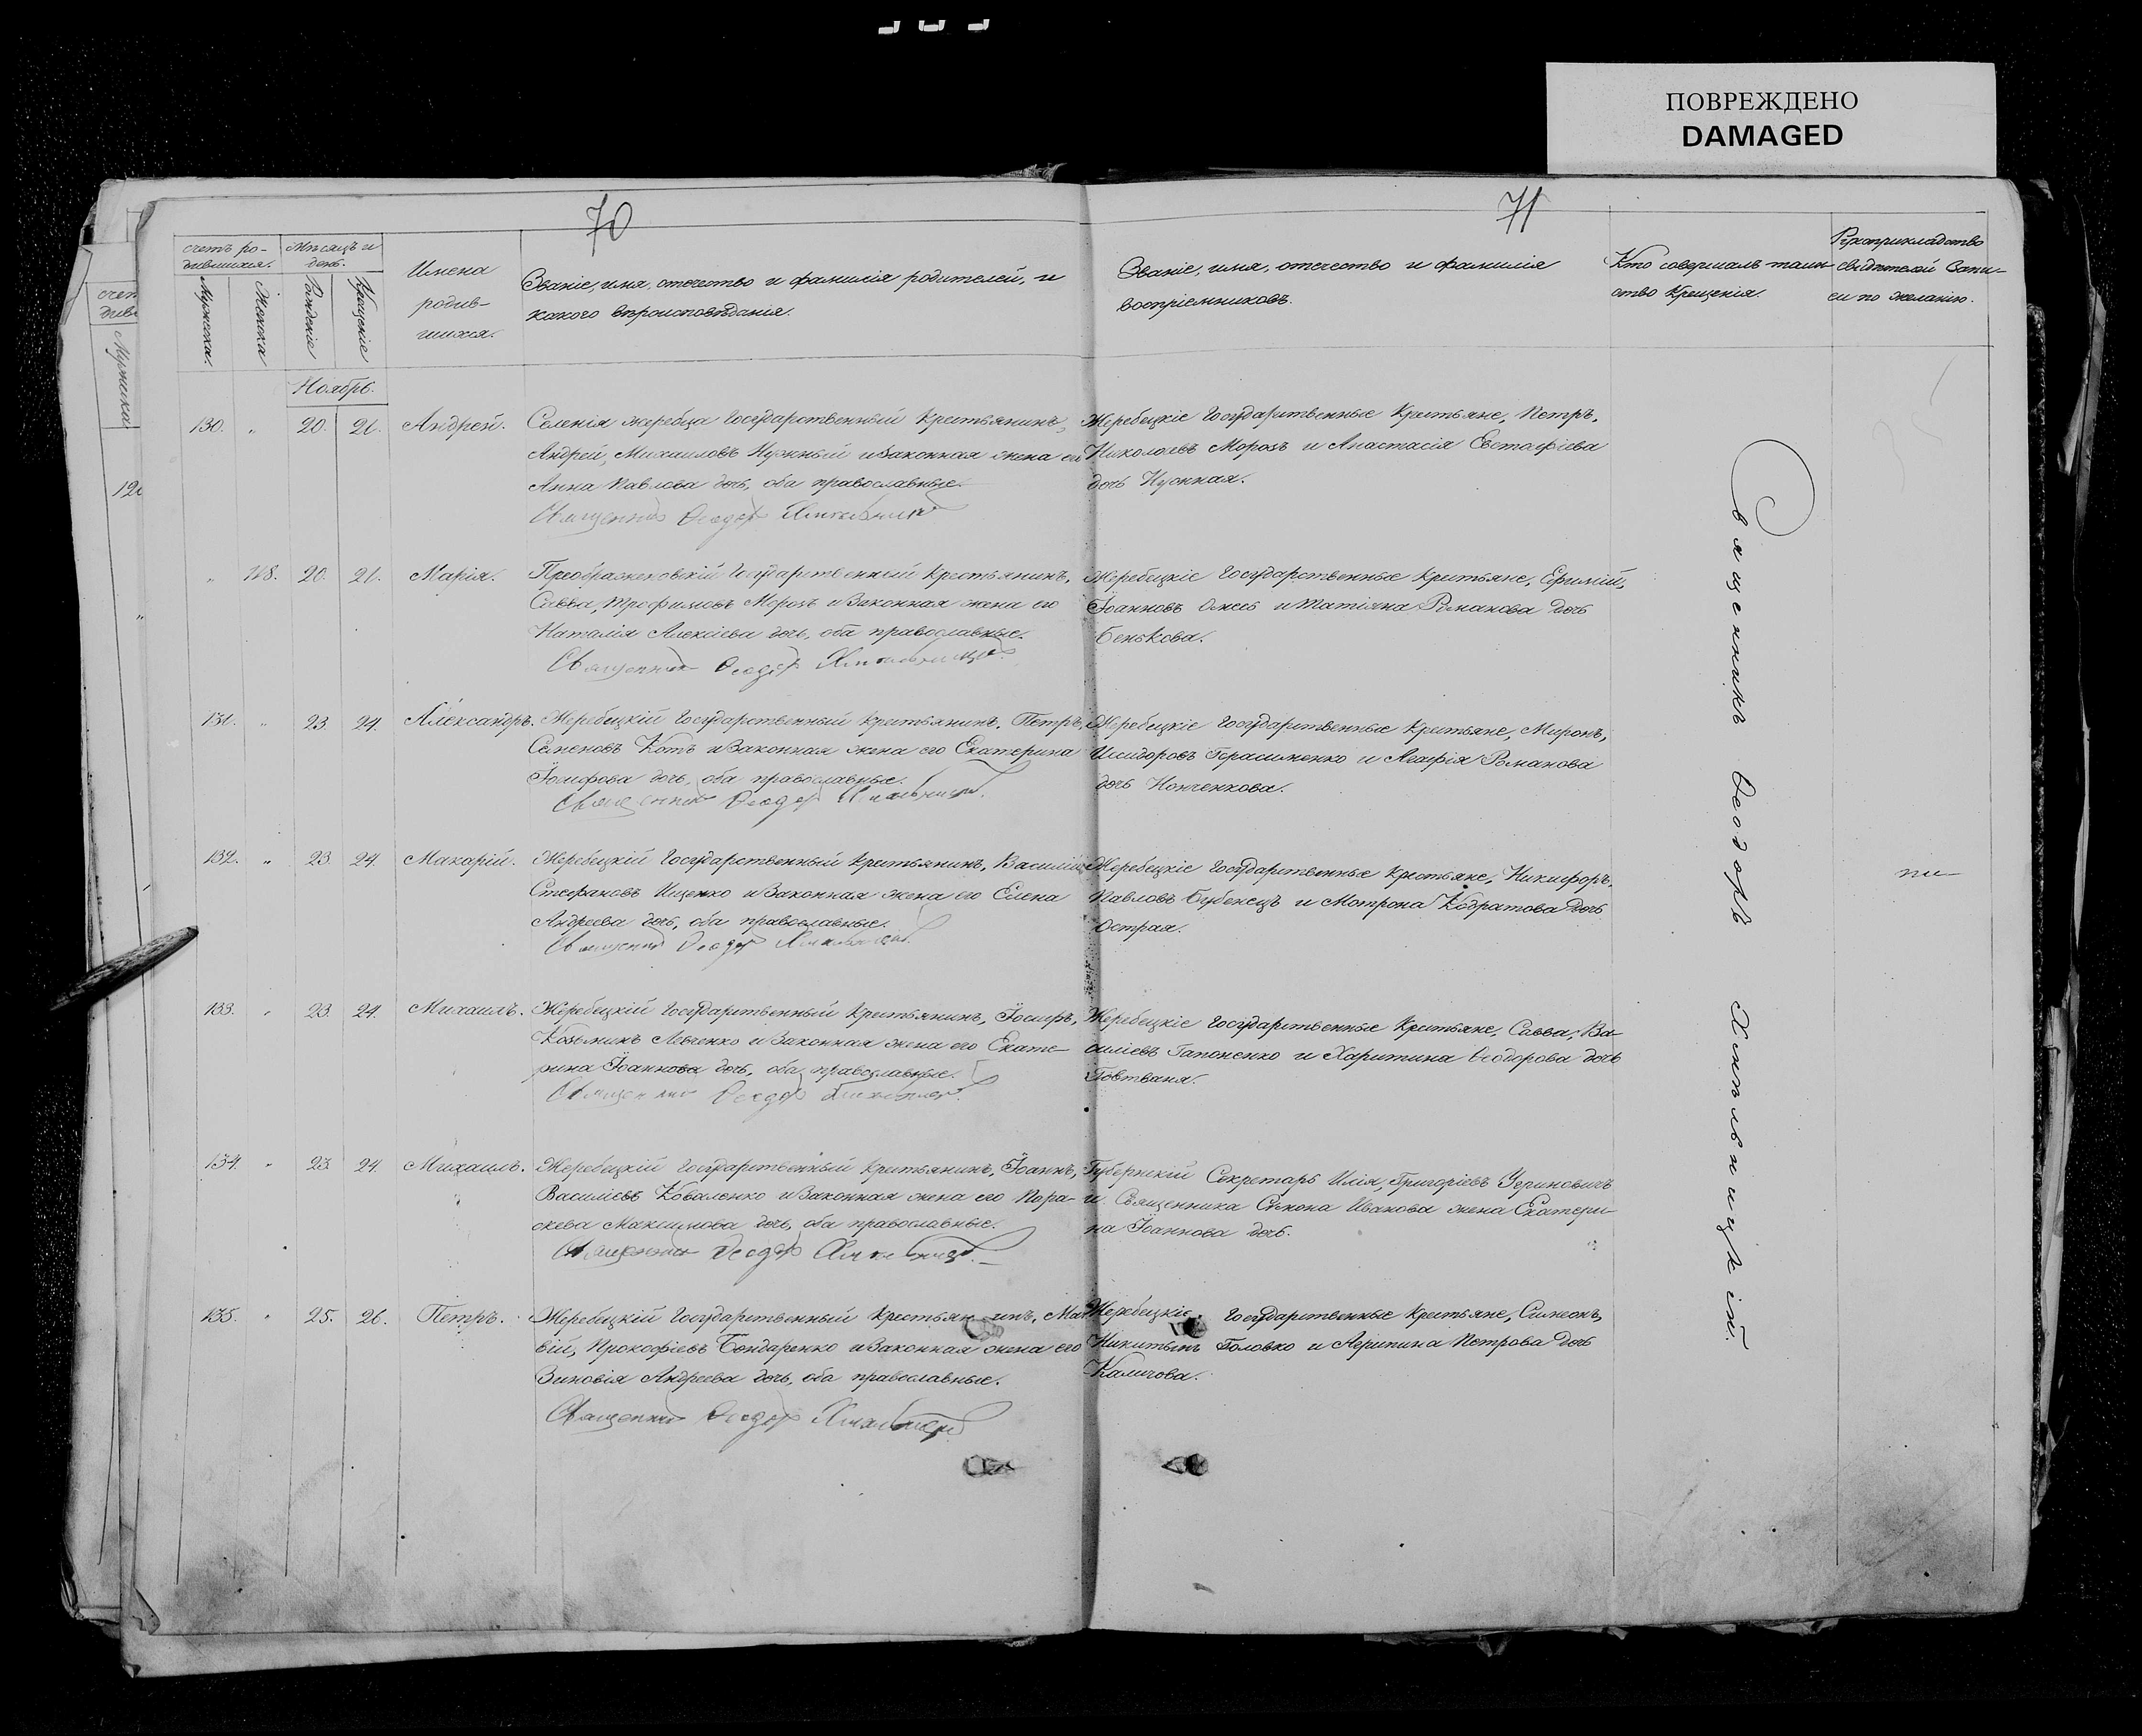 ПОВРЕЖДЕНО
DAMAGED
70
счетъ ро-
дившихся.
Мужеска.
Женска
Мѣсяцъ и
день.
Рожденіе
Крещеніе
Имена
родив-
шихся.
Званіе, имя, отечество и фамилія родителей, и
какого вѣроисповѣданія.
Ноябрь.
130. " 20. 21. Андрей.
Селенія жеребца Государственный Крестьянинъ,
Андрей, Михаиловъ Нужный и Законная жена его
Анна Павлова дочь, оба православные.
Священникъ Ѳеодоръ Хмѣльницкій
" 118. 20. 21. Марія.
Преображеновскій Государственный Крестьянинъ,
Савва, Трофимовъ Морозъ и Законная жена его
Наталія Алексіева дочь, оба православные.
Священникъ Ѳеодоръ Хмѣльницкій
131. " 23. 24. Александръ.
Жеребецкій Государственный Крестьянинъ, Петръ,
Семеновъ Котъ и Законная жена его Екатерина
Іосифова дочь, оба православные.
Священникъ Ѳеодоръ Хмѣльницкій
132. " 23. 24. Макарій.
Жеребецкій Государственный Крестьянинъ, Василій,
Стефановъ Ищенко и Законная жена его Елена
Андреева дочь, оба православные.
Священникъ Ѳеодоръ Хмѣльницкій
133. " 23. 24. Михаилъ.
Жеребецкій Государственный Крестьянинъ, Іосифъ,
Козьминъ Левченко и Законная жена его Екате-
рина Іоаннова дочь, оба православные.
Священникъ Ѳеодоръ Хмѣльницкій
134. " 23. 24. Михаилъ.
Жеребецкій Государственный Крестьянинъ, Іоаннъ,
Василіевъ Коваленко и Законная жена его Пора-
скева Максимова дочь, оба православные.
Священникъ Ѳеодоръ Хмѣльницкій
135. " 25. 26. Петръ.
Жеребецкій Государственный Крестьянинъ, Мат
вій, Прокофіевъ Бондаренко и Законная жена его
Зиновія Андреева дочь, оба православные.
Священникъ Ѳеодоръ Хмѣльницкій
71
Званіе, имя, отечество и фамилія
воспріемниковъ.
Кто совершалъ таин
ство Крещенія.
Рукоприкладство
свидѣтелей Запи-
си по желанію.
Жеребецкіе Государственные Крестьяне, Петръ,
Николаевъ Морозъ и Анастасія Евстафіева
дочь Нужная.
Жеребецкіе Государственные Крестьяне, Ефимій,
Іоанновъ и Татіяна Романова дочь
Бенькова.
Жеребецкіе Государственные Крестьяне, Миронъ,
Исидоровъ Герасименко и Агафія Романова
дочь
Жеребецкіе Государственные Крестьяне, Никифоръ,
Павловъ Бубенецъ и Мотрона Кодратова дочь
Острая.
Жеребецкіе Государственные Крестьяне, Савва, Ва-
силіевъ Гапоненко и Харитина Ѳеодорова дочь
Жеребецкіе Государственные Крестьяне, Симеонъ,
Никитинъ Головко и Агрипина Петрова дочь
Губернскій Секретарь Илія, Григоріевъ
и Священника Симона Иванова жена Екатери-
на Іоаннова дочь.
Священникъ Ѳеодоръ Хмѣльницкій.
120